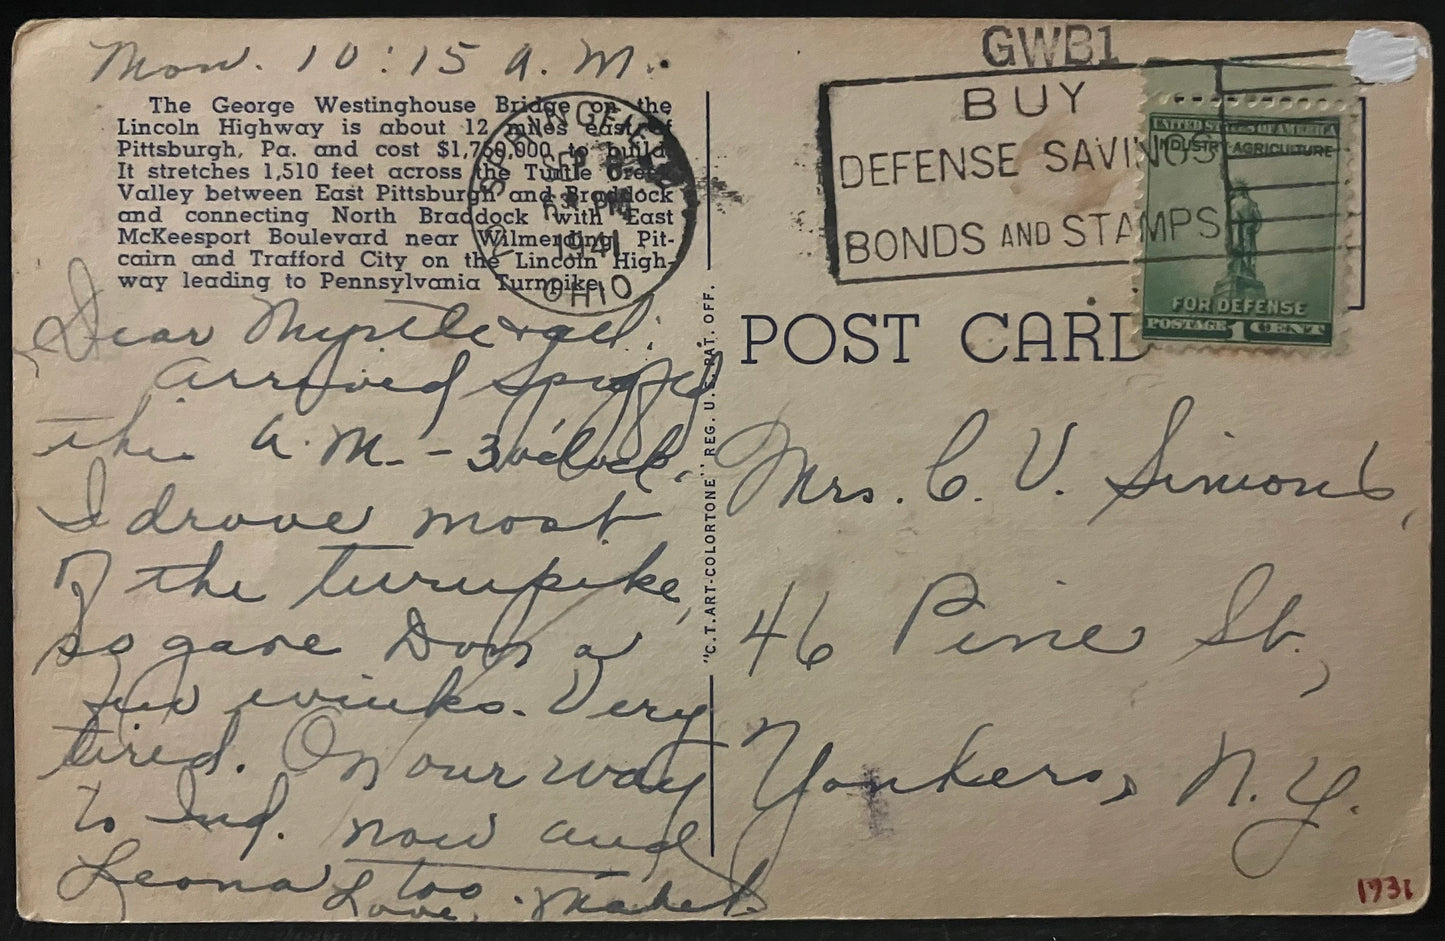 Mon. 10:15 A.M.
The George Westinghouse Bridge on the
Lincoln Highway is about 12 miles east of
Pittsburgh, Pa. and cost $1,760,000 to build.
It stretches 1,510 feet across the Turtle Creek
Valley between East Pittsburgh and Braddock
and connecting North Braddock with East
McKeesport Boulevard near Wilmerding, Pit-
cairn and Trafford City on the Lincoln High-
way leading to Pennsylvania Turnpike.
SEP 8
PM
1941
OHIO
Dear Myrtle & all:
Arrived Spgfld
this A.M. - 3 o'clock.
I drove most
of the turnpike,
so gave Don a
few winks. Very
tired. On our way
to Ind. now and
Leona too.
Love, Mabel
"C.T. ART-COLORTONE" REG. U.S. PAT. OFF.
GWB1
BUY
DEFENSE SAVINGS
BONDS AND STAMPS
UNITED STATES OF AMERICA
INDUSTRY AGRICULTURE
FOR DEFENSE
POSTAGE 1 CENT
POST CARD
Mrs. C. V. Simons,
46 Pine St.,
Yonkers, N.Y.
1931